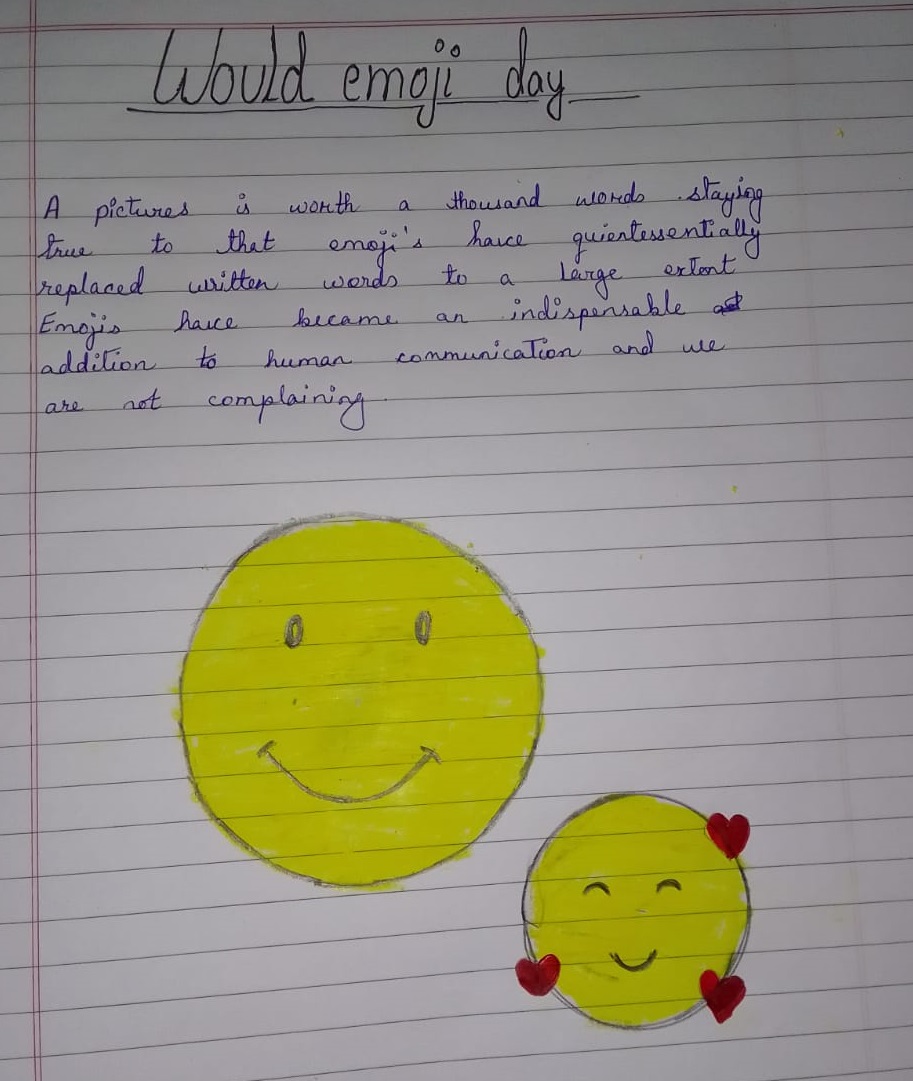 Would emoji day
A pictures is worth a thousand words staying
true to that emoji's have quientessentially
replaced written words to a large extent
Emojis have became an indispensable
addition to human communication and we
are not complaining